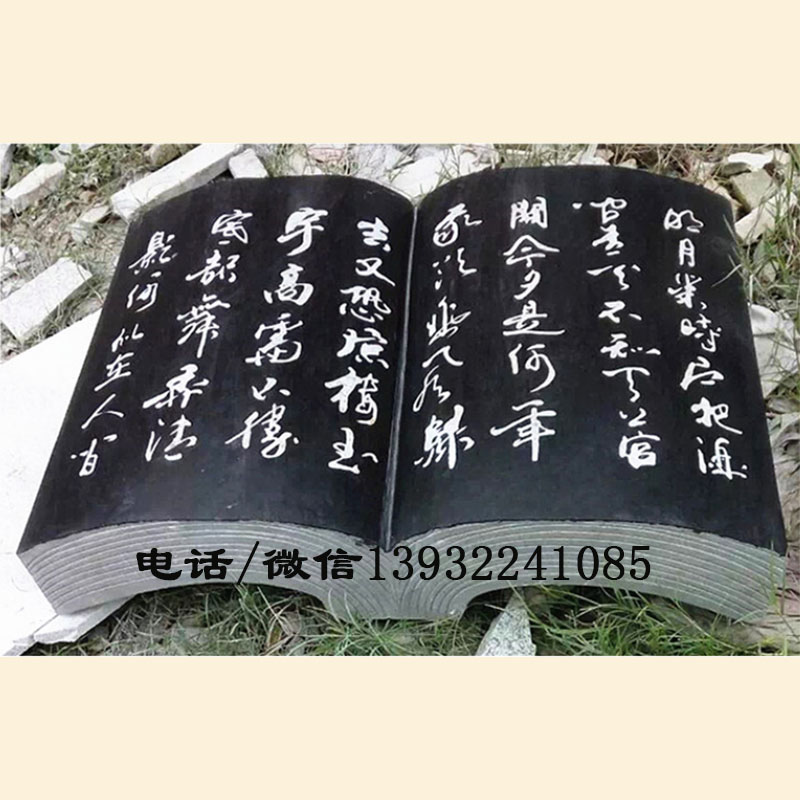 明月幾時有把酒
問青天不知天上宮
闕今夕是何年
我欲乘風歸
去又恐瓊樓玉
宇高處不勝
寒起舞弄清
影何似在人間
电话/微信13932241085